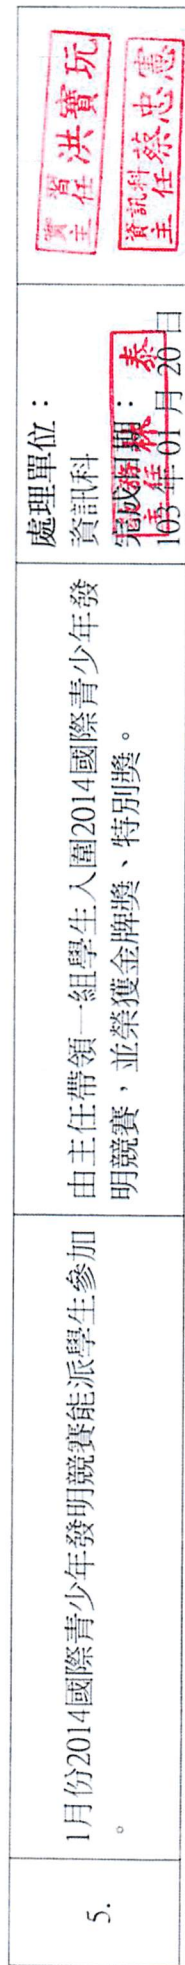 5.
1月份2014國際青少年發明競賽能派學生參加
。
由主任帶領一組學生入圍2014國際青少年發
明競賽，並榮獲金牌獎、特別獎。
處理單位：
資訊科
完成日期：
103 年 01 月 20 日
主任
主任 洪寶玩
資訊科
主任 蔡忠憲